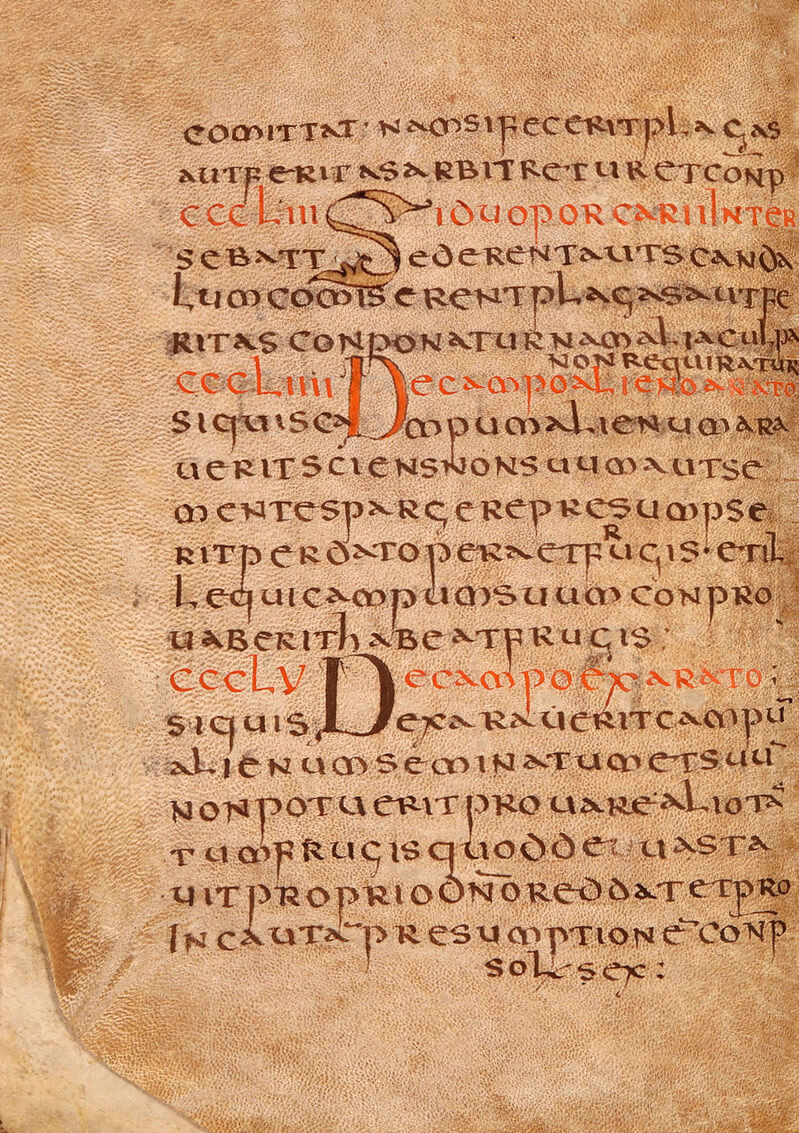 comittat· nam si fecerit plagas
aut feritas arbitretur et conp̄
CCCLIII Si duo porcarii inter
se batt Sederent aut scanda
lum comiserent plagas aut fe
ritas conponatur nam alia culpa
non requiratur
CCCLIIII De campo alieno arato
si quis campum alienum ara
uerit sciens non suum aut se
mente spargere presumpse
rit perdat opera et frugis· et il
le qui campum suum conpro
uaberit habeat frugis:
CCCLV De campo exarato;
si quis dexarauerit campū
alienum seminatum et suū
non potuerit prouare aliotā
tum frugis quod deuasta
uit proprio dn̄o reddat et pro
incauta presumptionē conp̄
sol sex: